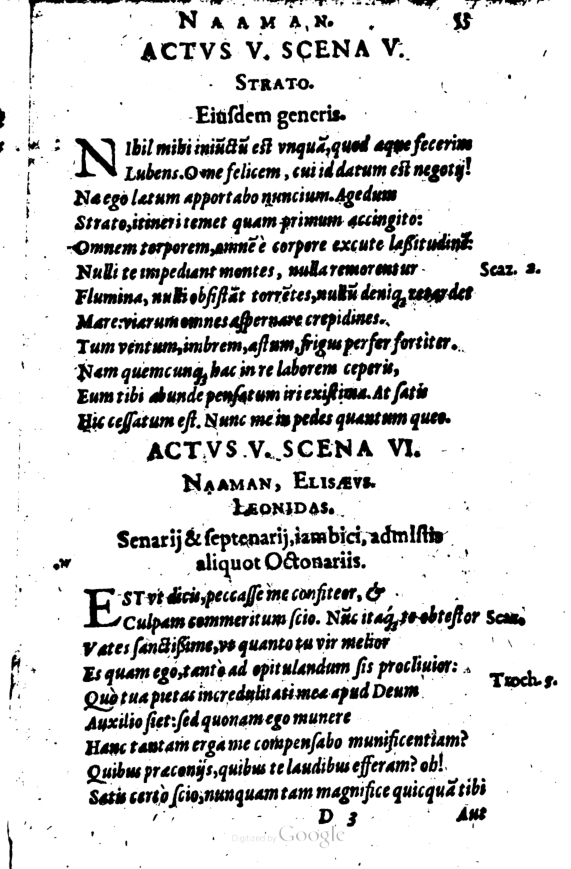 NAAMAN. 55
ACTVS V. SCENA V.
STRATO.
Eiuſdem generis.
NIhil mihi iniūctū eſt vnquā, quod aque fecerim
Lubens. O me felicem, cui id datum eſt negotij!
Na ego latum apportabo nuncium. Agedum
Strato, itineri temet quam primum accingito:
Omnem torporem, omnē è corpore excute laßitudinē:
Nulli te impediant montes, nulla remorentur Scaz. 2.
Flumina, nulli obſiſtāt torrētes, nullū deniq; retardet
Mare: viarum omnes aſpernare crepidines.
Tum ventum, imbrem, æſtum, frigus perfer fortiter.
Nam quemcunq; hac in re laborem ceperis,
Eum tibi abunde penſatum iri exiſtima. At ſatis
Hic ceſſatum eſt. Nunc me in pedes quantum queo.
ACTVS V. SCENA VI.
NAAMAN, ELISÆVS.
LEONIDAS.
Senarij & ſeptenarij, iambici, admiſtis
aliquot Octonariis.
EST vt dicis, peccaſſe me confiteor, &
Culpam commeritum ſcio. Nūc itaq; te obteſtor Scaz.
Vates ſanctißime, vt quanto tu vir melior
Es quam ego, tantò ad opitulandum ſis procliuior:
Quò tua pietas incredulitati mea apud Deum Troch. 5.
Auxilio ſiet: ſed quonam ego munere
Hanc tantam erga me compenſabo munificentiam?
Quibus præconijs, quibus te laudibus efferam? oh!
Satis certò ſcio, nunquam tam magnifice quicquā tibi
D 3 Aut
Digitized by Google